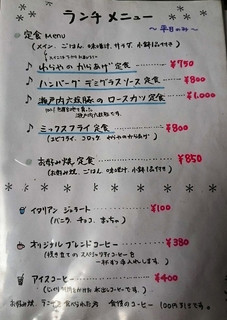 ランチ メニュー
～平日のみ～
◎ 定食 Menu
(メイン、ごはん、味噌汁、サラダ、小鉢1品付き)
♪ わらやのからあげ定食 ¥750
♪ ハンバーグ デミグラスソース 定食 ¥800
♪ 瀬戸内六穀豚の ロースカツ 定食 ¥1,000
♪ ミックスフライ 定食 ¥800
(エビフライ、コロッケ、からあげ)
◎ お好み焼 定食 ¥850
(お好み焼、ごはん、味噌汁、小鉢1品付き)
♪ イタリアン ジェラート ¥100
(バニラ、チョコ、まっちゃ)
♪ オリジナル ブレンド コーヒー ¥380
♪ アイスコーヒー ¥400
お好み焼、ランチを食べられた方 食後のコーヒー 100円引きです。